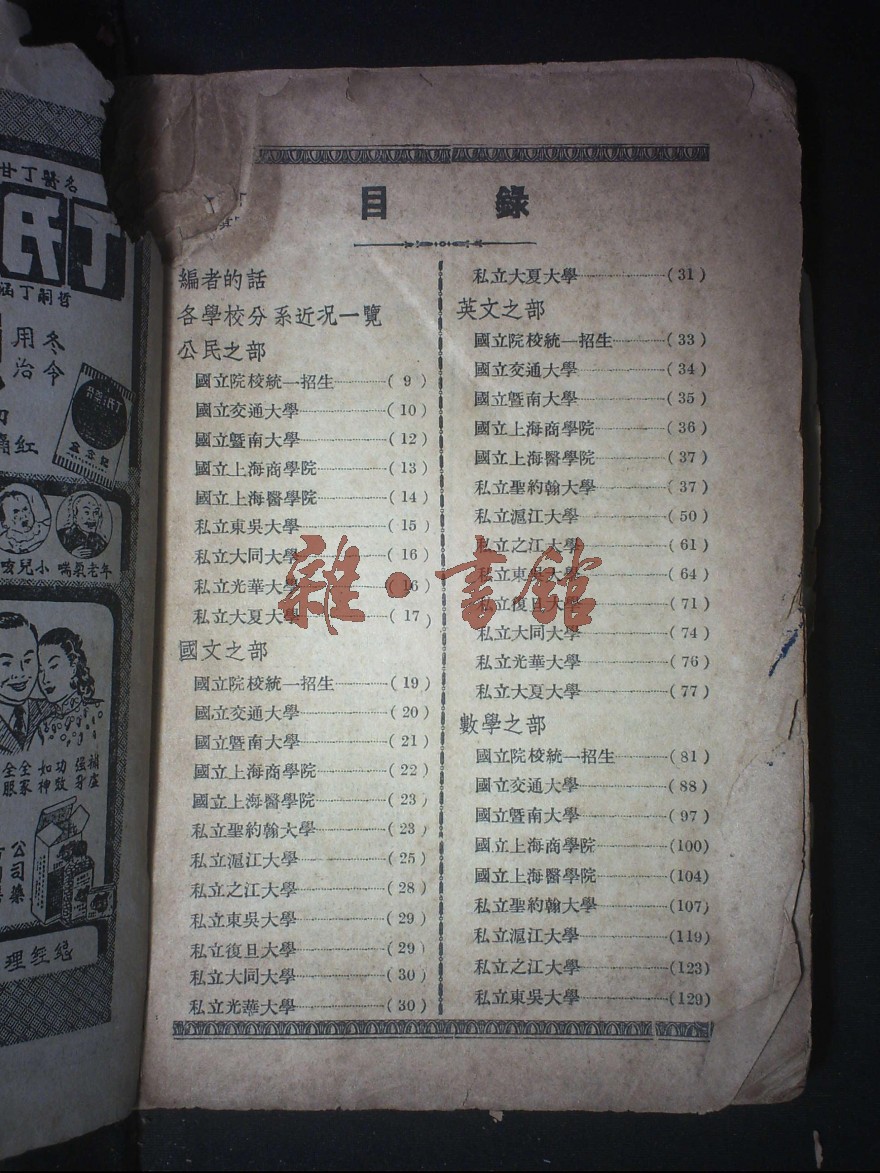 目錄
編者的話
各學校分系近況一覽
公民之部
國立院校統一招生…………( 9 )
國立交通大學…………(10)
國立暨南大學…………(12)
國立上海商學院…………(13)
國立上海醫學院…………(14)
私立東吳大學…………(15)
私立大同大學…………(16)
私立光華大學…………(16)
私立大夏大學…………(17)
國文之部
國立院校統一招生…………(19)
國立交通大學…………(20)
國立暨南大學…………(21)
國立上海商學院…………(22)
國立上海醫學院…………(23)
私立聖約翰大學…………(23)
私立滬江大學…………(25)
私立之江大學…………(28)
私立東吳大學…………(29)
私立復旦大學…………(29)
私立大同大學…………(30)
私立光華大學…………(30)
私立大夏大學…………(31)
英文之部
國立院校統一招生…………(33)
國立交通大學…………(34)
國立暨南大學…………(35)
國立上海商學院…………(36)
國立上海醫學院…………(37)
私立聖約翰大學…………(37)
私立滬江大學…………(50)
私立之江大學…………(61)
私立東吳大學…………(64)
私立復旦大學…………(71)
私立大同大學…………(74)
私立光華大學…………(76)
私立大夏大學…………(77)
數學之部
國立院校統一招生…………(81)
國立交通大學…………(88)
國立暨南大學…………(97)
國立上海商學院…………(100)
國立上海醫學院…………(104)
私立聖約翰大學…………(107)
私立滬江大學…………(119)
私立之江大學…………(123)
私立東吳大學…………(129)
雜·書館
名醫丁甘
丁氏
哲嗣丁涵
冬令
用治
老年氣喘
小兒咳
補虛
強身
功效
如神
全家
全服
公司藥
總經理